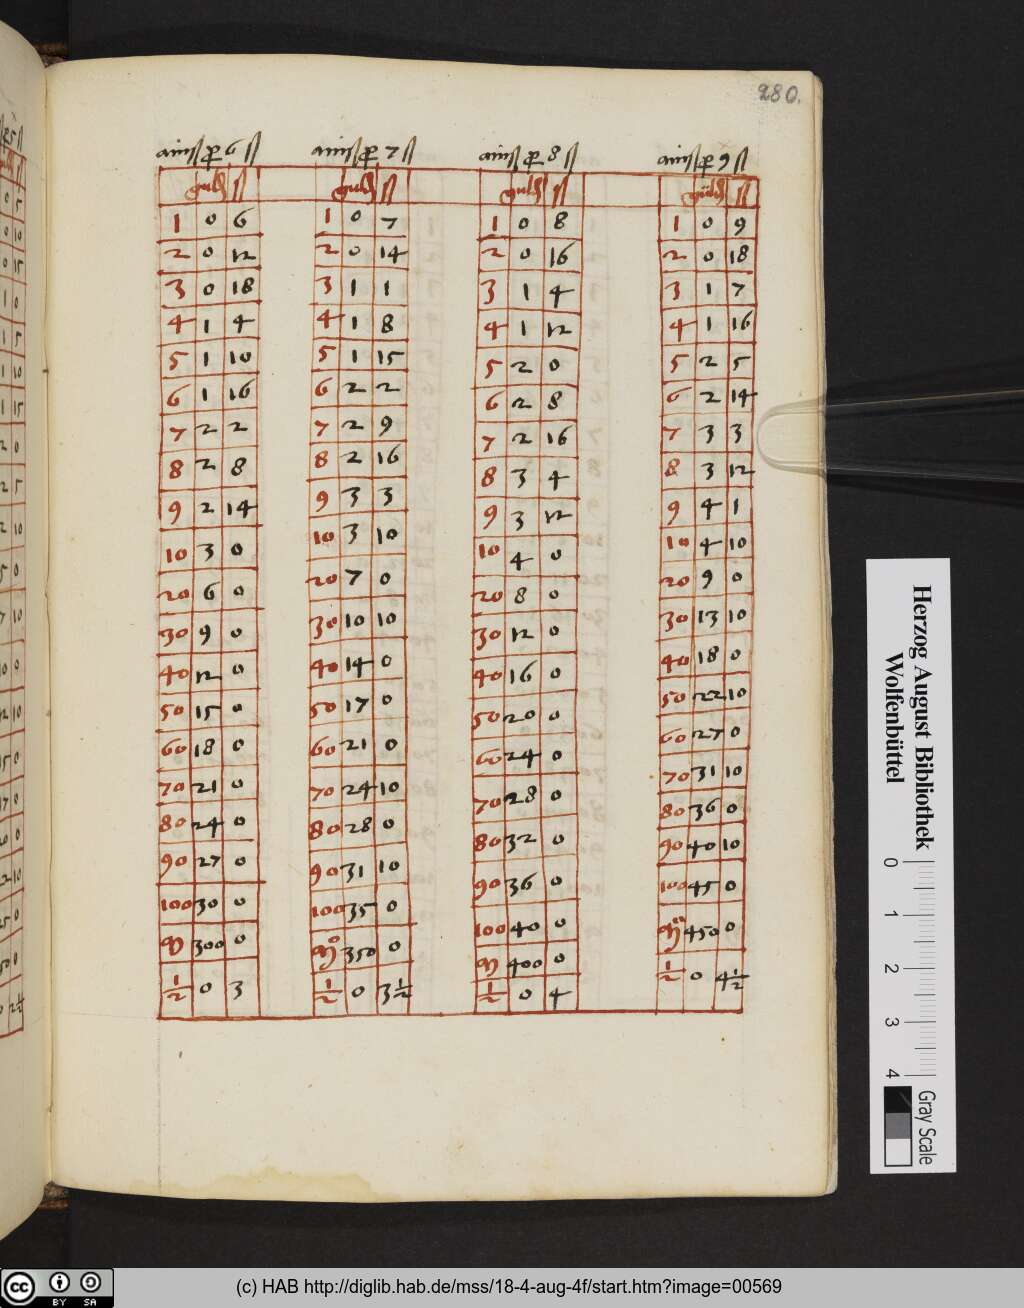 280.
ainß ꝑ 6 ß
guld ß
1 0 6
2 0 12
3 0 18
4 1 4
5 1 10
6 1 16
7 2 2
8 2 8
9 2 14
10 3 0
20 6 0
30 9 0
40 12 0
50 15 0
60 18 0
70 21 0
80 24 0
90 27 0
100 30 0
M 300 0
½ 0 3
ainß ꝑ 7 ß
guld ß
1 0 7
2 0 14
3 1 1
4 1 8
5 1 15
6 2 2
7 2 9
8 2 16
9 3 3
10 3 10
20 7 0
30 10 10
40 14 0
50 17 0
60 21 0
70 24 10
80 28 0
90 31 10
100 35 0
M 350 0
½ 0 3½
ainß ꝑ 8 ß
guld ß
1 0 8
2 0 16
3 1 4
4 1 12
5 2 0
6 2 8
7 2 16
8 3 4
9 3 12
10 4 0
20 8 0
30 12 0
40 16 0
50 20 0
60 24 0
70 28 0
80 32 0
90 36 0
100 40 0
M 400 0
½ 0 4
ainß ꝑ 9 ß
guld ß
1 0 9
2 0 18
3 1 7
4 1 16
5 2 5
6 2 14
7 3 3
8 3 12
9 4 1
10 4 10
20 9 0
30 13 10
40 18 0
50 22 10
60 27 0
70 31 10
80 36 0
90 40 10
100 45 0
M 450 0
½ 0 4½
Herzog August Bibliothek
Wolfenbüttel
0 1 2 3 4
Gray Scale
cc BY SA
(c) HAB http://diglib.hab.de/mss/18-4-aug-4f/start.htm?image=00569